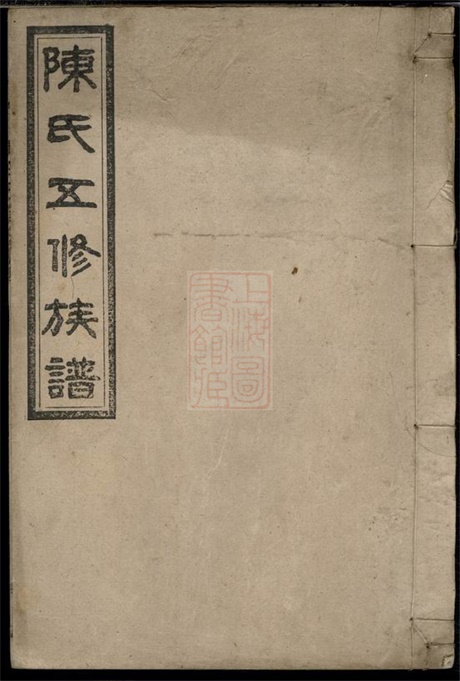 陳氏五修族譜
上海圖
書館藏